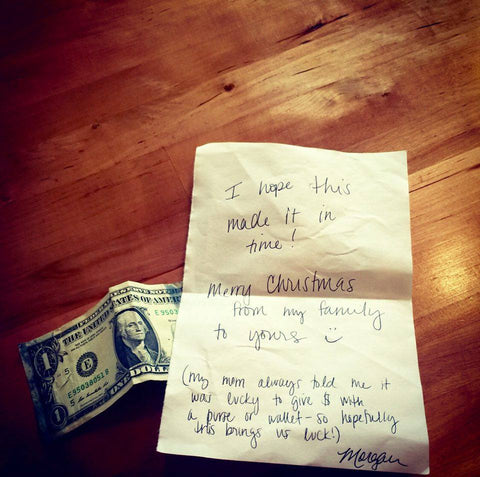 I hope this
made it in
time!
Merry Christmas
from my family
to yours :)
(my mom always told me it
was lucky to give $ with
a purse or wallet - so hopefully
this brings us luck!)
Morgan
FEDERAL RESERVE NOTE
THE UNITED STATES OF AMERICA
1
E
5
E95030051B
ONE DOLLAR
1